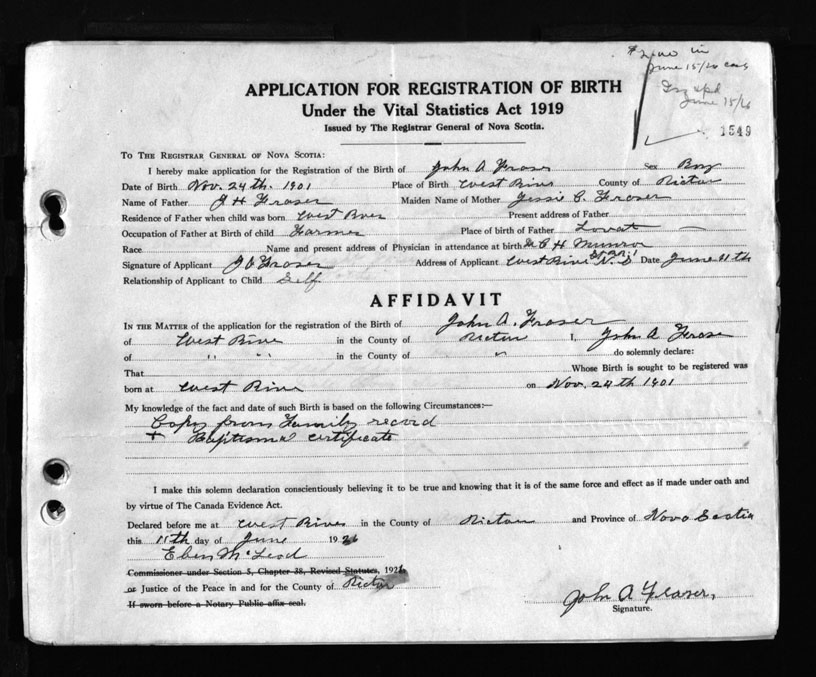 $2.00 in
June 15/26
June 15/26
1549
APPLICATION FOR REGISTRATION OF BIRTH
Under the Vital Statistics Act 1919
Issued by The Registrar General of Nova Scotia.
TO THE REGISTRAR GENERAL OF NOVA SCOTIA:
I hereby make application for the Registration of the Birth of John A Fraser Sex Boy
Date of Birth Nov. 24th. 1901 Place of Birth West River County of Pictou
Name of Father J H Fraser Maiden Name of Mother Jessie C. Fraser
Residence of Father when child was born West River Present address of Father
Occupation of Father at Birth of child Farmer Place of birth of Father Lovat
Race Name and present address of Physician in attendance at birth Dr C H Munro
Signature of Applicant J A Fraser Address of Applicant West River Sta N.S Date June 11th
Relationship of Applicant to Child Self
AFFIDAVIT
IN THE MATTER of the application for the registration of the Birth of John A. Fraser
of West River in the County of Pictou I, John A Fraser
of " " in the County of " do solemnly declare:
That Whose Birth is sought to be registered was
born at West River on Nov. 24th 1901
My knowledge of the fact and date of such Birth is based on the following Circumstances:—
Copy from Family record
+ Baptismal certificate
I make this solemn declaration conscientiously believing it to be true and knowing that it is of the same force and effect as if made under oath and
by virtue of The Canada Evidence Act.
Declared before me at West River in the County of Pictou and Province of Nova Scotia
this 11th day of June 1926
Eben McLeod
Commissioner under Section 5, Chapter 38, Revised Statutes, 192
or Justice of the Peace in and for the County of Pictou
If sworn before a Notary Public affix seal.
John A Fraser,
Signature.